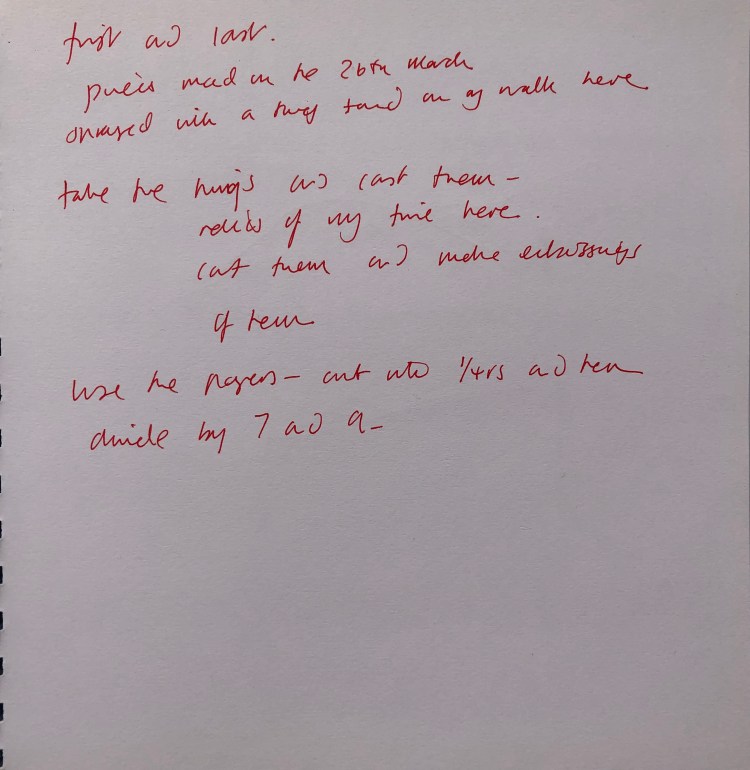 first and last.
pieces made on the 26th March
embossed with a thing found on my walk here
take the things and cast them –
relics of my time here.
cast them and make embossings
of them
use the papers – cut into 1/4rs and then
divide by 7 and 9 –